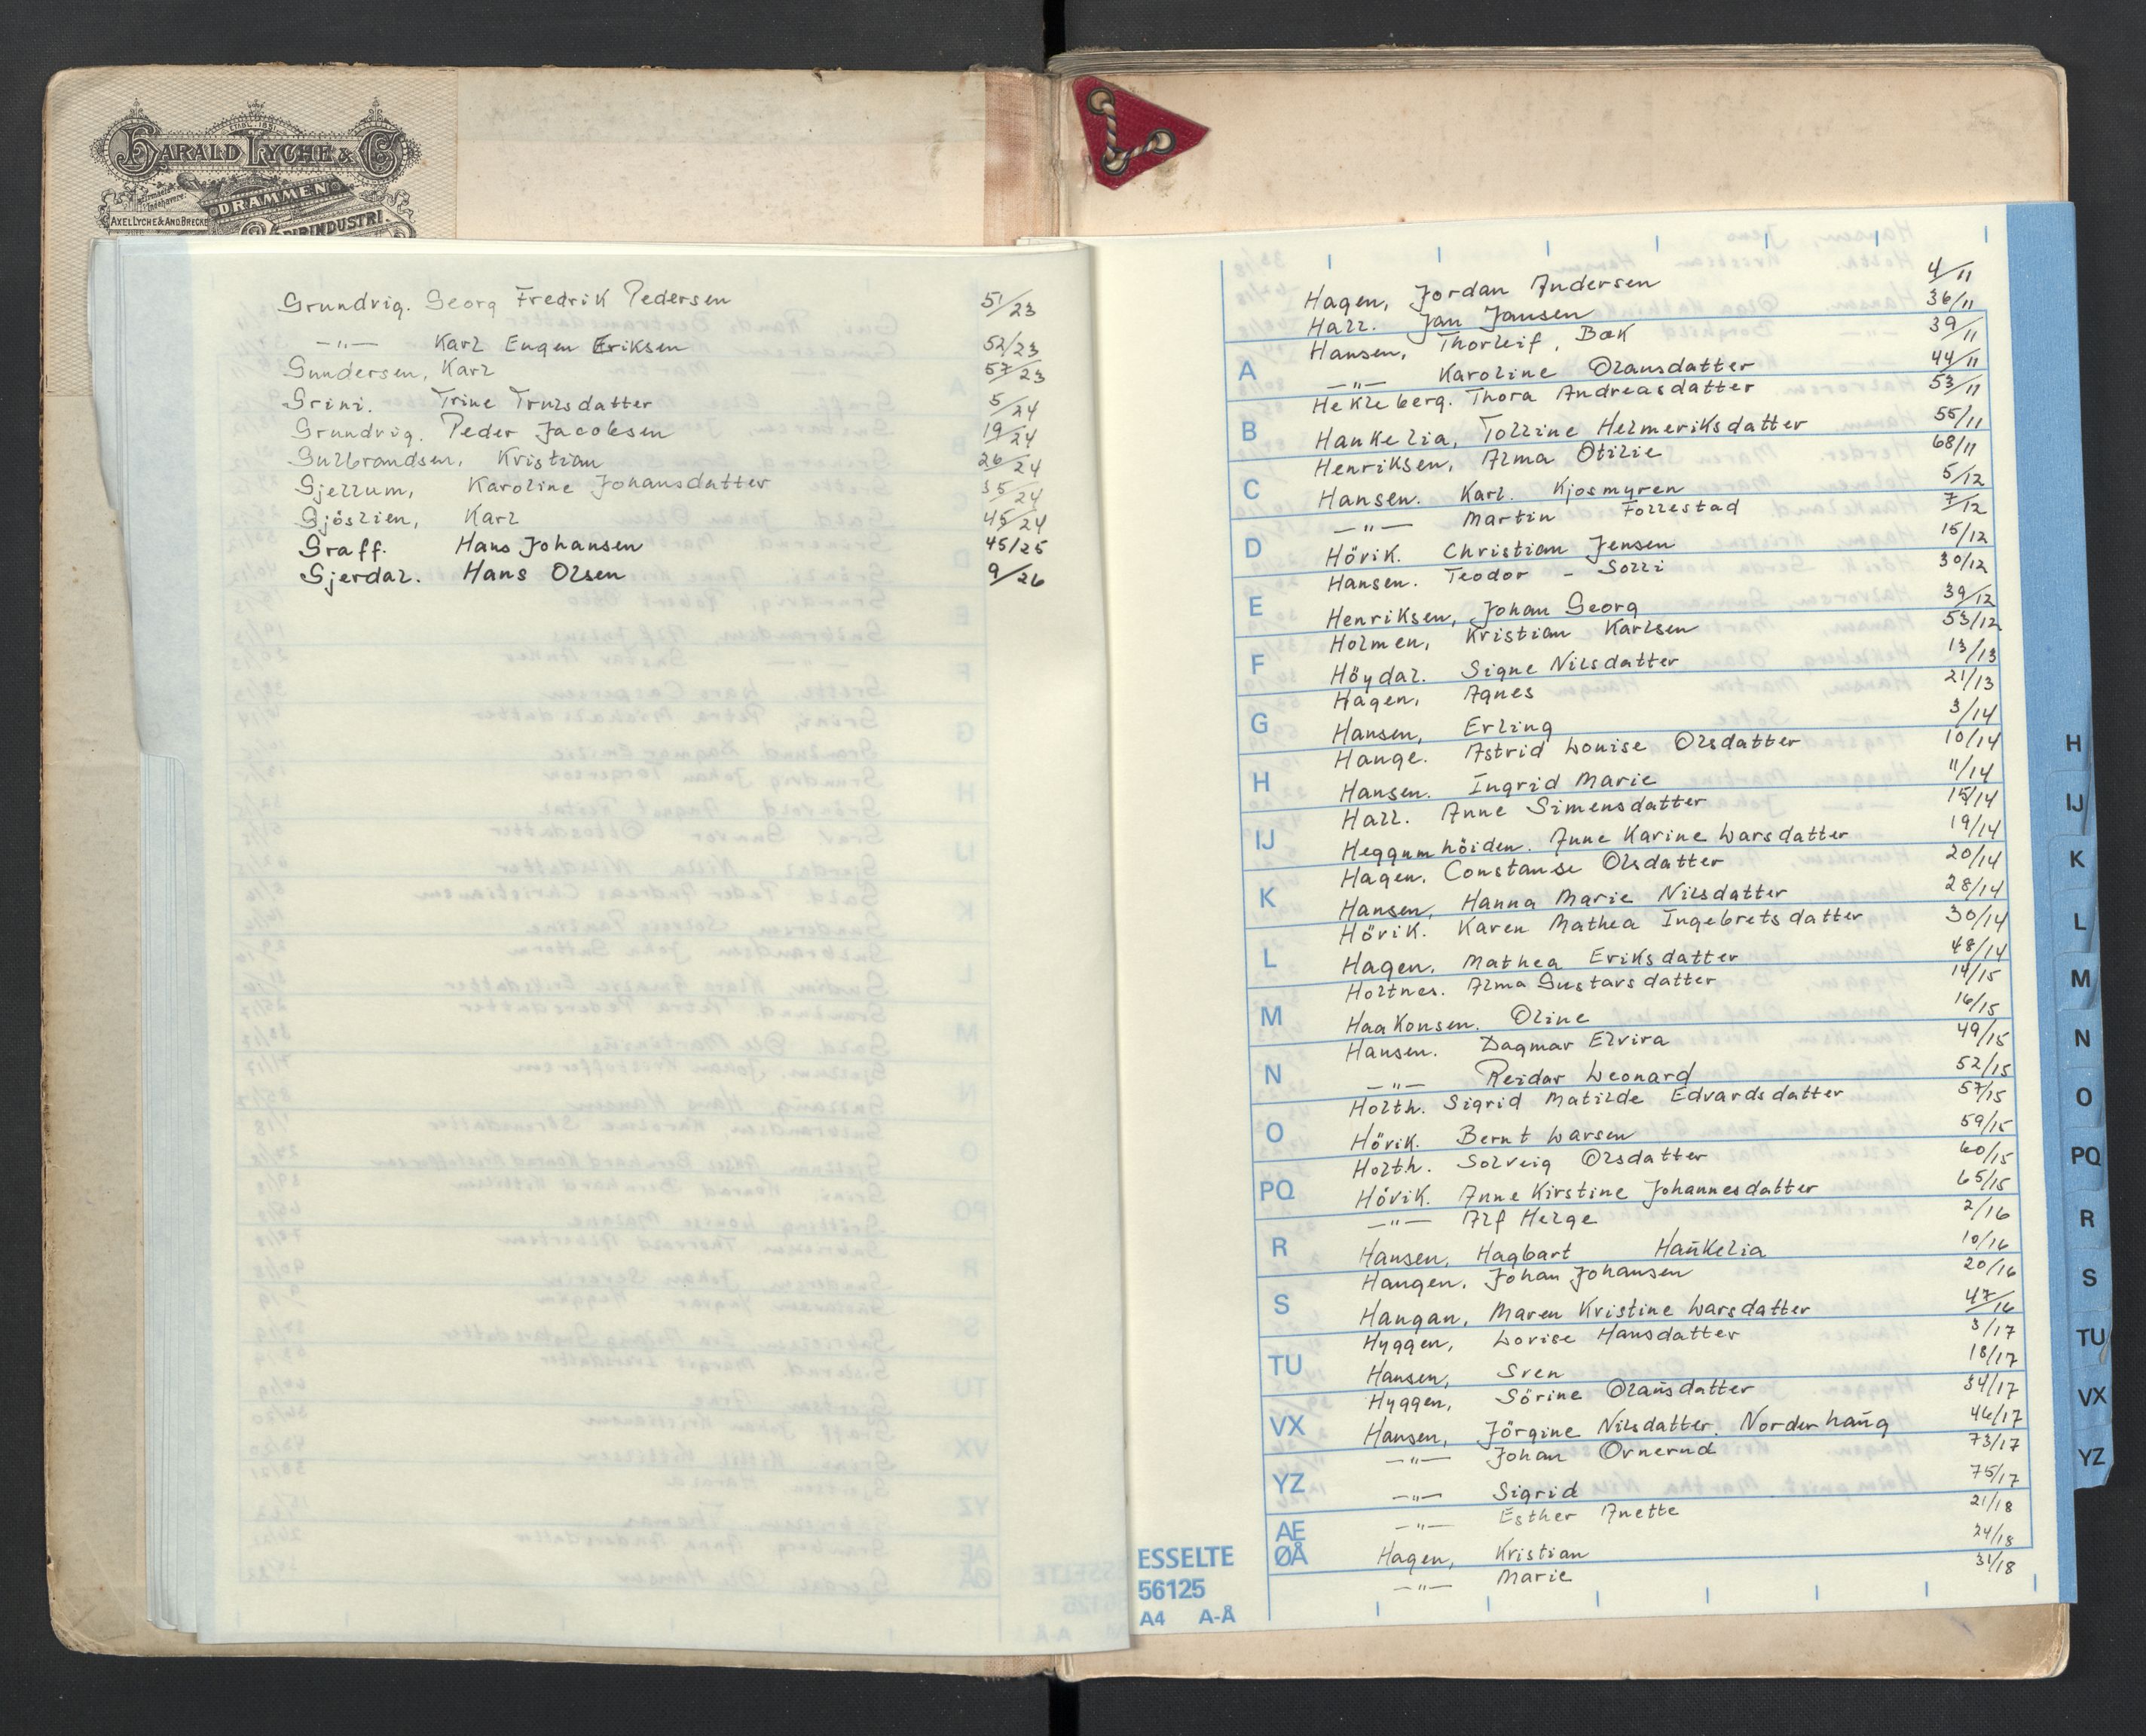 HARALD LYCHE & Co
DRAMMEN
AXEL LYCHE & AND BRECKE
PAPIRINDUSTRI.
Grundvig. Georg Fredrik Pedersen 51/23
—"— Karl Eugen Eriksen 52/23
Gundersen, Karl 57/23
Grini. Trine Trulsdatter 5/24
Grundvig. Peder Jacobsen 19/24
Gulbrandsen, Kristian 26/24
Gjellum, Karoline Johansdatter 35/24
Gjöslien, Karl 45/24
Graff. Hans Johansen 45/25
Gjerdal. Hans Olsen 9/26
Hagen, Jordan Andersen 4/11
Hall. Jan Jansen 36/11
Hansen, Thorleif, Bæk 39/11
—"— Karoline Olausdatter 44/11
Hekleberg. Thora Andreasdatter 53/11
Haukelia, Tolline Helmeriksdatter 55/11
Henriksen, Alma Otilie 68/11
Hansen. Karl. Kjosmyren 5/12
—"— Martin Follestad 7/12
Hövik. Christian Jensen 15/12
Hansen. Teodor - Solli 30/12
Henriksen, Johan Georg 39/12
Holmen, Kristian Karlsen 53/12
Höydal. Signe Nilsdatter 13/13
Hagen, Agnes 21/13
Hansen, Erling 3/14
Hauge. Astrid Louise Olsdatter 10/14
Hansen. Ingrid Marie 11/14
Hall. Anne Simensdatter 15/14
Heggumhöiden. Anne Karine Larsdatter 19/14
Hagen. Constanse Olsdatter 20/14
Hansen, Hanna Marie Nilsdatter 28/14
Hövik. Karen Mathea Ingebretsdatter 30/14
Hagen. Mathea Eriksdatter 48/14
Holtnes. Alma Gustavsdatter 14/15
Haakonsen. Oline 16/15
Hansen. Dagmar Elvira 49/15
—"— Reidar Leonard 52/15
Holth. Sigrid Matilde Edvardsdatter 57/15
Hövik. Bernt Larsen 59/15
Holth. Solveig Olsdatter 60/15
Hövik. Anne Kirstine Johannesdatter 65/15
—"— Alf Helge 2/16
Hansen, Hagbart Haukelia 10/16
Haugen. Johan Johansen 20/16
Haugan, Maren Kristine Larsdatter 47/16
Hyggen, Lovise Hansdatter 3/17
Hansen, Sven 18/17
Hyggen, Sörine Olausdatter 34/17
Hansen, Jörgine Nilsdatter. Norderhaug 46/17
—"— Johan Ovnerud 73/17
—"— Sigrid 75/17
—"— Esther Anette 21/18
Hagen, Kristian 24/18
—"— Marie 31/18
A
B
C
D
E
F
G
H
IJ
K
L
M
N
O
PQ
R
S
TU
VX
YZ
AE
ØÅ
ESSELTE
56125
A4 A-Å
H
IJ
K
L
M
N
O
PQ
R
S
TU
VX
YZ